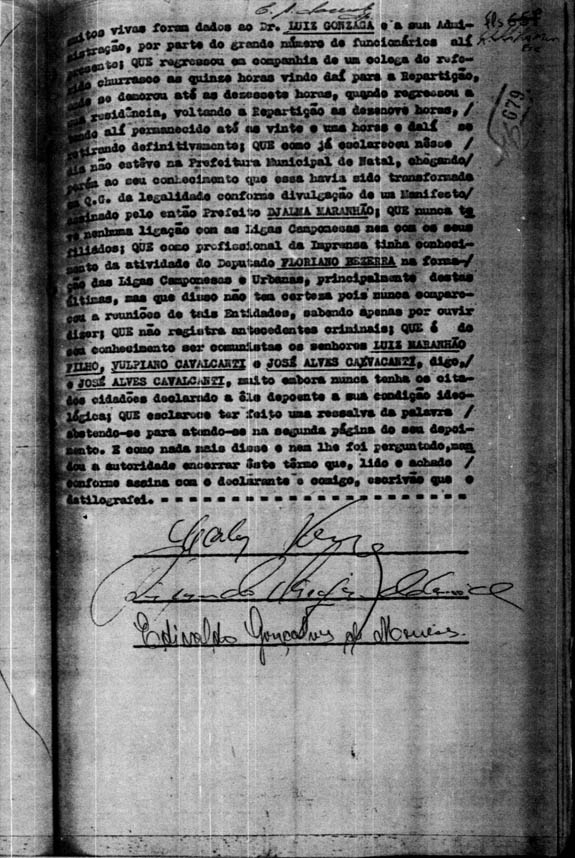 muitos vivas foram dados ao Dr. LUIZ GONZAGA e a sua Admi-
nistração, por parte do grande número de funcionários alí
presente; QUE regressou em companhia de um colega do refe-
rido churrasco as quinze horas vindo daí para a Repartição,
onde se demorou até as dezessete horas, quando regressou a
sua residência, voltando a Repartição as dezenove horas, /
tendo alí permanecido até as vinte e uma horas e dalí se
retirando definitivamente; QUE como já esclareceu nêsse /
dia não estêve na Prefeitura Municipal de Natal, chegando/
porém ao seu conhecimento que essa havia sido transformada
em Q.G. da legalidade conforme divulgação de um Manifesto/
assinado pelo então Prefeito DJALMA MARANHÃO; QUE nunca te
ve nenhuma ligação com as Ligas Camponesas nem com os seus
filiados; QUE como profissional da Imprensa tinha conheci-
mento da atividade do Deputado FLORIANO BEZERRA na forma-/
ção das Ligas Camponesas e Urbanas, principalmente destas
últimas, mas que disso não tem certeza pois nunca compare-
ceu a reuniões de tais Entidades, sabendo apenas por ouvir
dizer; QUE não registra antecedentes criminais; QUE é do
seu conhecimento ser comunistas os senhores LUIZ MARANHÃO
FILHO, VULPIANO CAVALCANTI e JOSÉ ALVES CAVVACANTI, digo,/
e JOSÉ ALVES CAVALCANTI, muito embora nunca tenha os cita-
dos cidadões declarado a êle depoente a sua condição ideo-
lógica; QUE esclarece ter feito uma ressalva da palavra /
abstendo-se para atendo-se na segunda página do seu depoi-
mento. E como nada mais disse e nem lhe foi perguntado, man
dou a autoridade encerrar êste têrmo que, lido e achado /
conforme assina com o declarante e comigo, escrivão que o
datilografei. = = = = = = = = = = = = = = = = = = = = = =
Edivaldo Gonçalves de